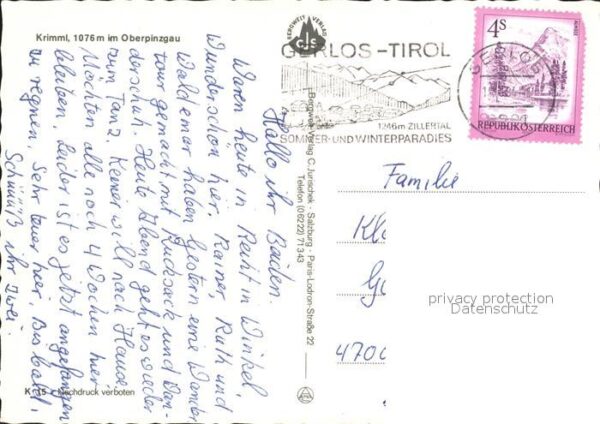 Krimml, 1076 m im Oberpinzgau
Hallo ihr Beiden.
Waren heute in Reith in Winkel
Wunderschön hier. Rainer, Ruth und
Waldemar haben Gestern eine Wander
tour gemacht mit Rucksack und Wan-
derschuh. Heute Abend geht es wieder
zum Tanz. Keiner will nach Hause
Möchten alle noch 4 Wochen hier
bleiben. Leider ist es jetzt angefangen
zu regnen. Sehr teuer hier. Bis bald,
Schüüß ihr zwei
K 15 Nachdruck verboten
BERGWELT VERLAG
Bergwelt-Verlag C. Jurischek - Salzburg - Paris-Lodron-Straße 22
Telefon (06222) 71343
GERLOS-TIROL
1246m ZILLERTAL
SOMMER- UND WINTERPARADIES
GERLOS
4S
REPUBLIK ÖSTERREICH
Familie
Kl
G
470
privacy protection
Datenschutz